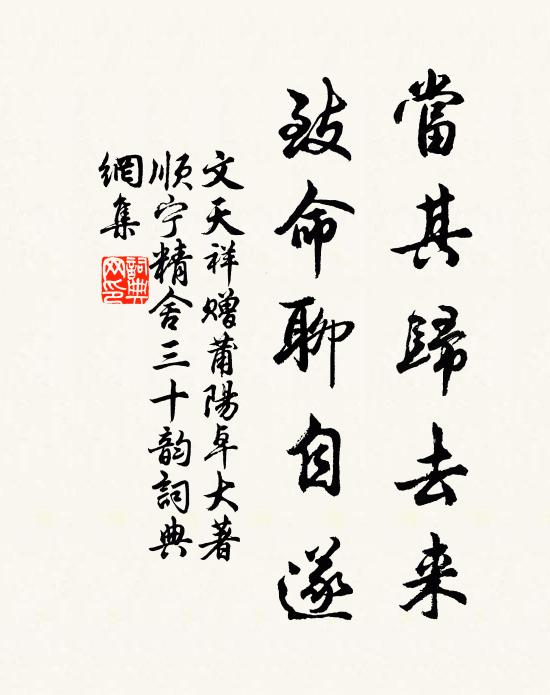 當其歸去来
致命聊自遂
文天祥赠莆陽卓大著
順宁精舍三十韵詞典
網集
詞典網印